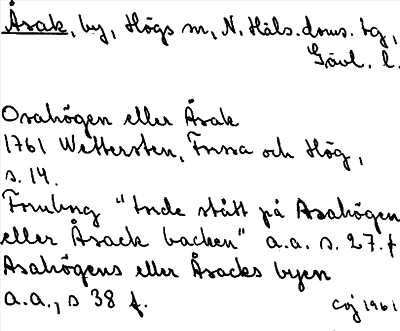 Åsak, by, Högs sn, N. Häls. doms. tg,
Gävl. l.
Osahögen eller Åsak
1761 Wettersten, Forssa och Hög,
s. 14.
"stått på Asahögen
eller Åsack backen" a.a. s. 27. f
Asahögens eller Åsacks byen
a.a., s 38 f.
1961